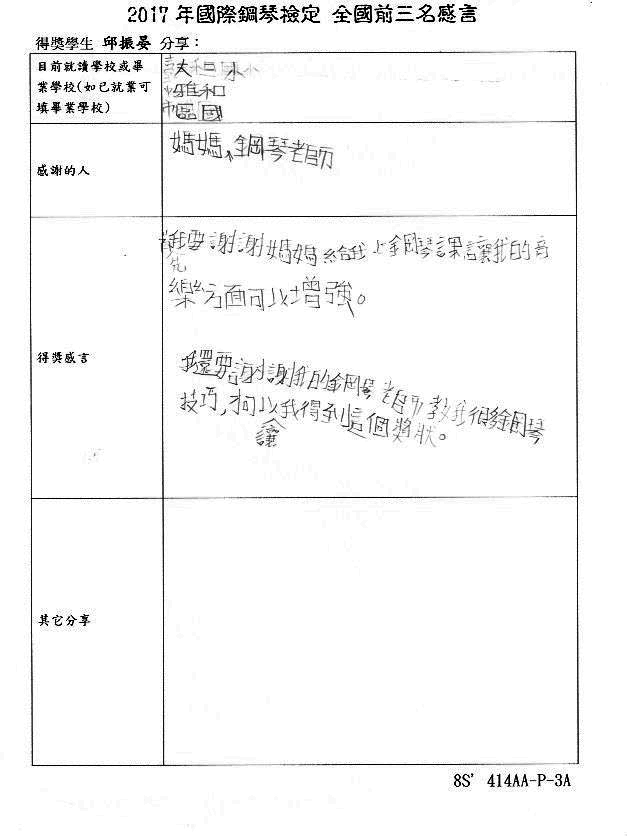 2017 年國際鋼琴檢定 全國前三名感言
得獎學生 邱振晏 分享：
目前就讀學校或畢
業學校(如已就業可
填畢業學校)
雅和
區國
感謝的人
媽媽、鋼琴老師
得獎感言
我要謝謝媽媽給我上鋼琴課讓我的音
先
樂方面可以增強。
我還要謝謝我的鋼琴老師教我很多鋼琴
技巧，可以我得到這個獎狀。
讓
其它分享
8S' 414AA-P-3A